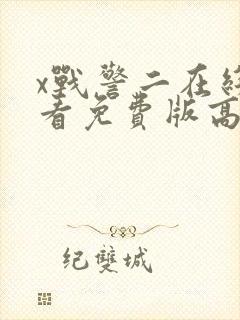 x戰警二在綫
看免費版高
纪雙城